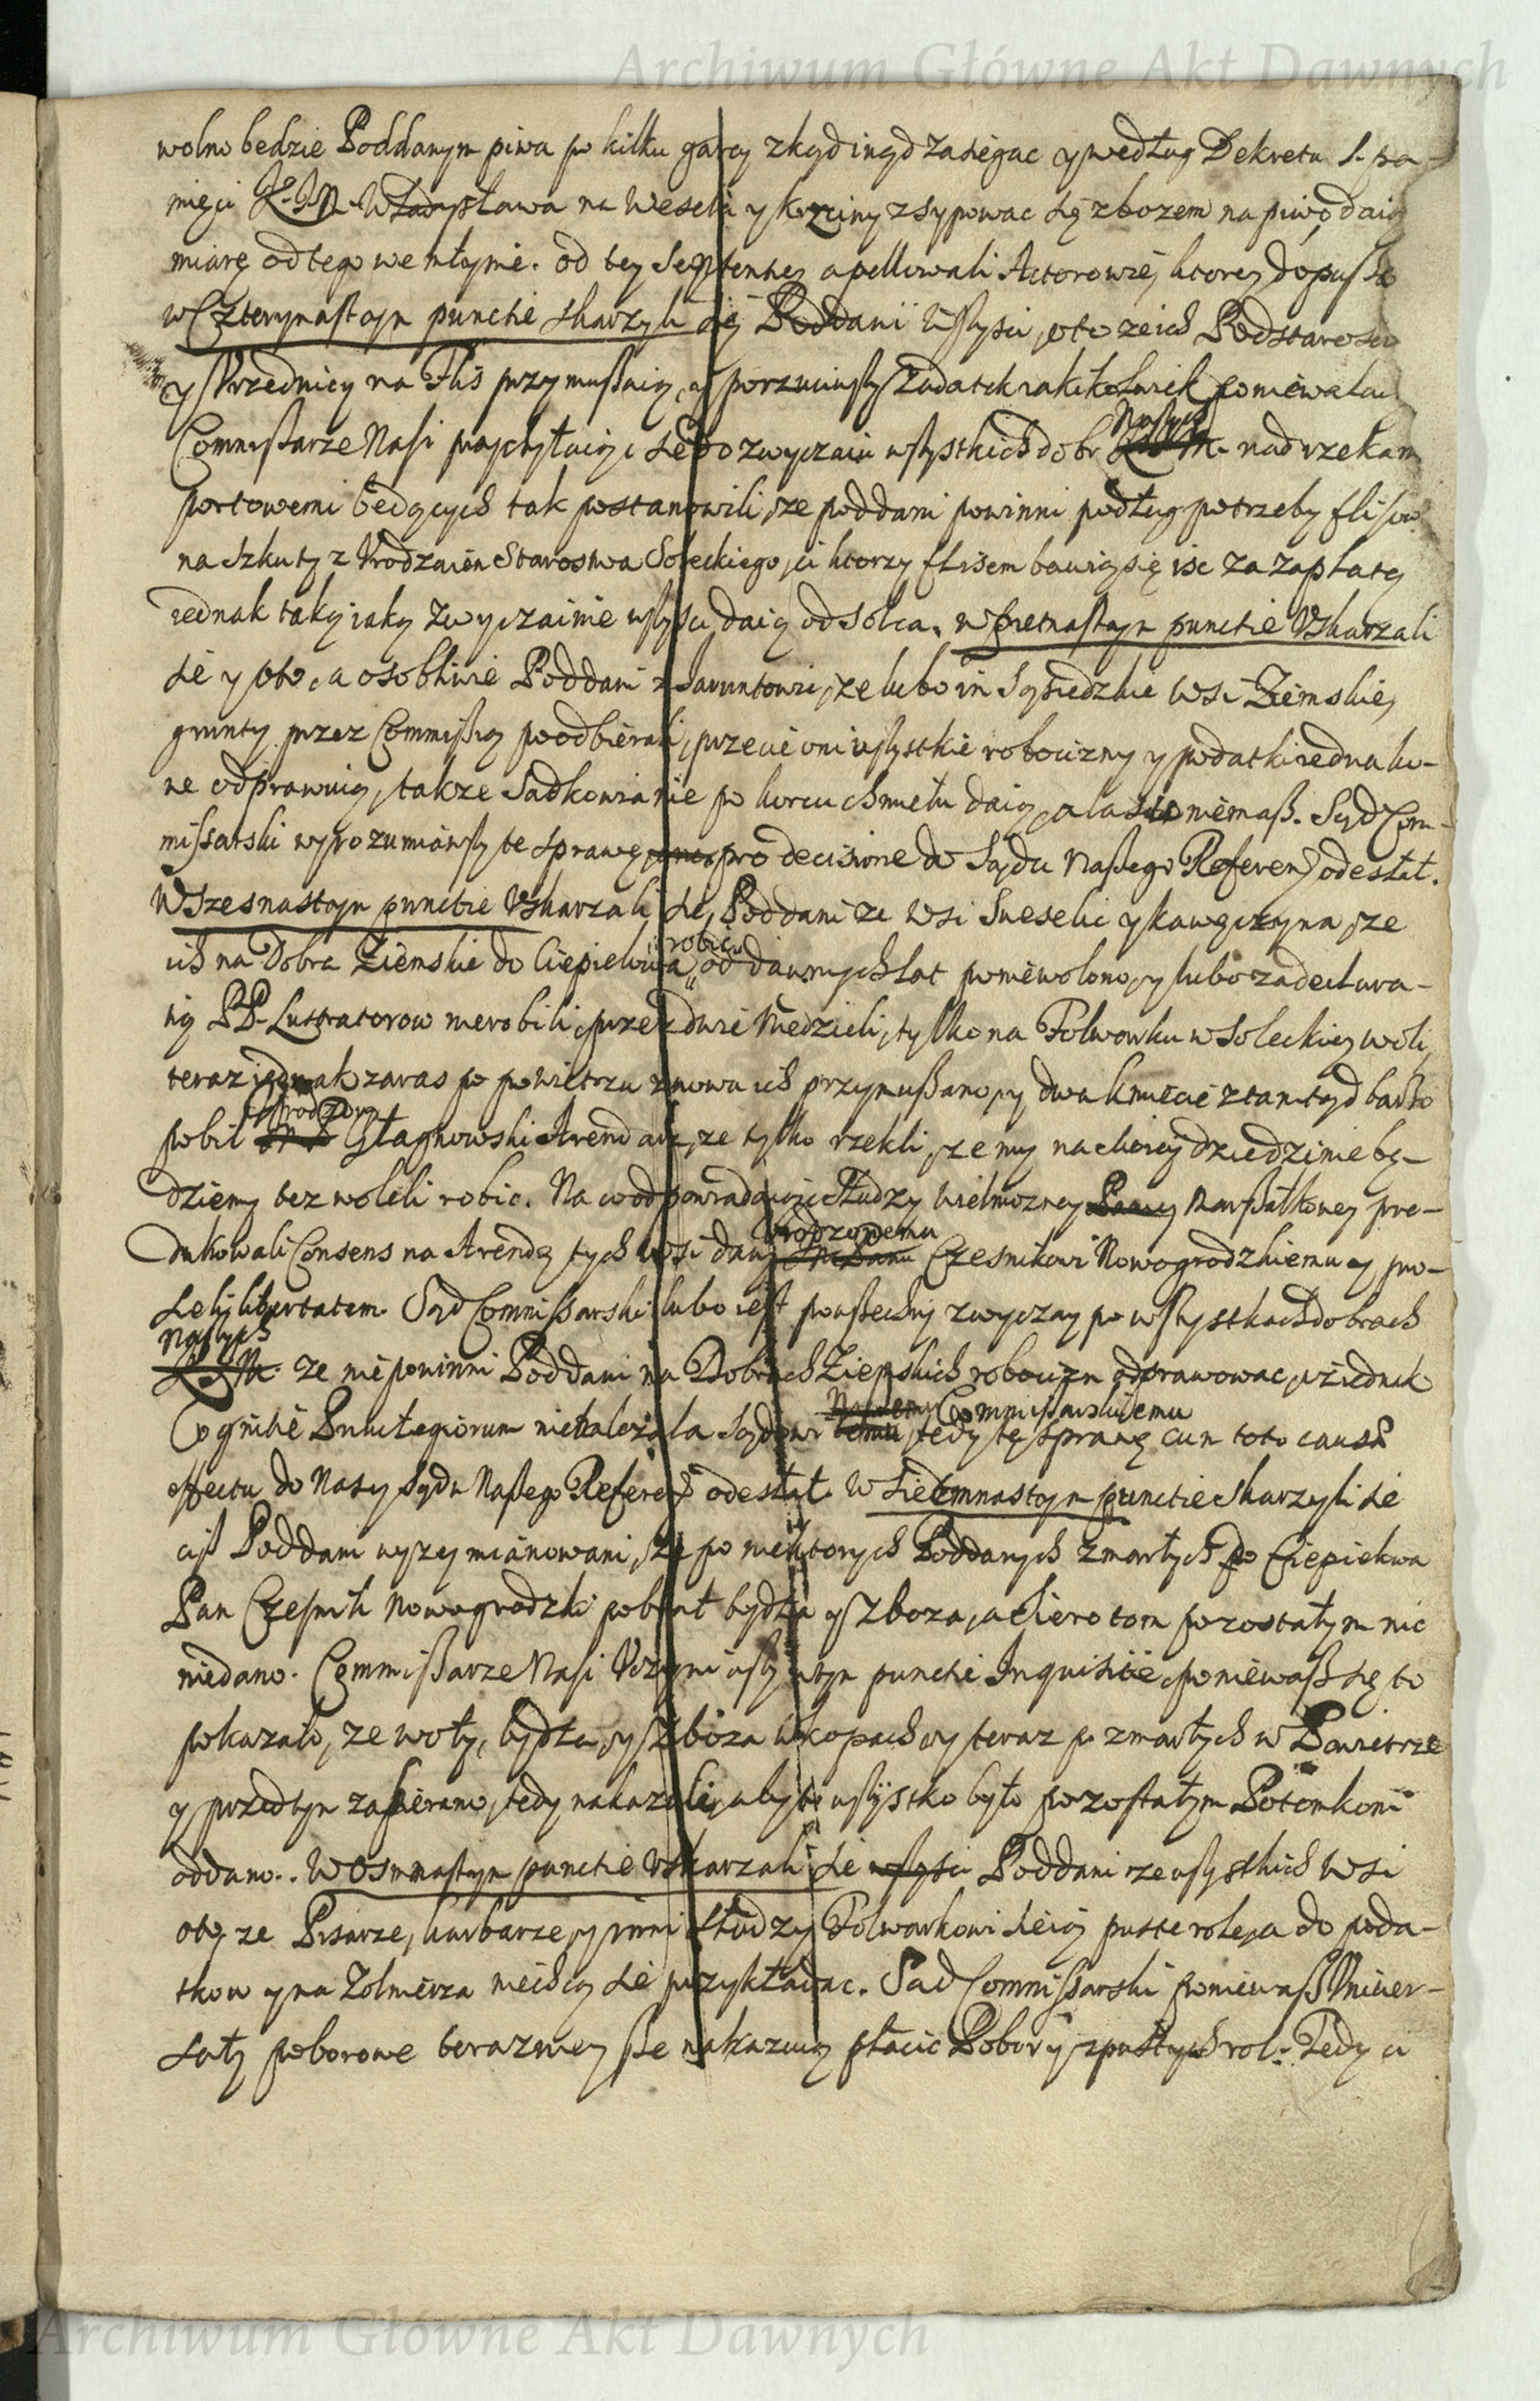 Archiwum Główne Akt Dawnych
wolno bedzie Poddanym piwa po kilku garcy zkąd inąd zasiegac y według Dekretu S. pa-
mięci K. J. M. Władysława na Wesela y krzciny zsypowac się zbozem na piwo daią
miarę od tego we młynie. od tey Sententiey apellowali Actorowie, ktorey dopuss
w Czterynastym punctie skarzyli się Poddani wszysci, o to ze ich Podstarosci
y Vrzednicy na Flis przymuszaią, y porzuciwszy Zadatek iakikolwiek poniewalaią
Commissarze Nasi przychylaiąc się do zwyczaiu wszystkich dobr Naszych nad rzekami
portowemi będących tak postanowili, ze poddani powinni podług potrzeby flisow
na szkuty z Vrodzaiem Starostwa Soleckiego, ci ktorzy flisem bawią się isc za zapłatą
iednak taką iaką zwyczainie wszysci daią od Solca. w Pietnastym punctie Vskarzali
sie y o to, a osobliwie Poddani z , ze lubo im Sąsiedzkie wsi Ziemskiey
grunty przez Commissią poodbierali, przecie oni wszystkie robocizny y podatki iednako-
we odprawuią, takze Sadkowianie po korcu chmielu daią, a lasu niemasz. Sąd Com-
missarski wyrozumiawszy te sprawę pro decisione do Sądu Naszego Referen: odesłał.
W Szesnastym punctie Vskarzali się Poddani ze wsi y Kawęczyna, ze
ich na Dobra Ziemskie do Ciepielowa robic od dawnych lat poniewolono, y lubo za declara-
tią PP. Lustratorow nierobili przez dwie Niedzieli, tylko na Folwarku w Soleckiey woli,
teraz iednak zaras po powietrzu znowu ich przymuszano, y dwu kmieci ztamtąd barzo
pobił Vrodzony Głagnowski Arendarz, ze tylko rzekli, ze my na dziedzinie bę-
dziemy bez woleli robic. Na co odpowiadaiąc Słudzy Wielmozney Panny Marszałkowey pro-
dukowali Consens na Arendę tych wsi dany Vrodzonemu Czesnikowi Nowogrodzkiemu y pro-
libertatem. Sąd Commissarski lubo iest powszechny zwyczay po wszystkich dobrach
Naszych K. J. M. ze nie powinni Poddani na Dobrach Ziemskich robocizn odprawowac, iz iednak
Cognitie Priuilegiorum nie nalezała Sądowi Commissarskiemu, tedy tę sprawę cum toto causae
effectu do Naszy Sądu Naszego Referen: odesłał. W Siedmnastym punctie skarzyli sie
ciż Poddani wyzey mianowani, ze po niektorych Poddanych zmarłych do Ciepielowa
Pan Czesnik Nowogrodzki pobrał bydła y zboza, a sierotom pozostałym nic
niedano. Commissarze Nasi Vczyniwszy w tym punctie Inquisitie, poniewasz się to
pokazało, ze woły, bydła, y zboza w kopach y teraz po zmarłych w Powietrze
y przedtym zabierano, tedy nakazali, aby to wszystko było pozostałym Potomkom
oddano. W Osmnastym punctie Vskarzali sie wszysci Poddani ze wszystkich wsi
oto, ze Pisarze, karbarze, y inni słudzy Folwarkowi sieią puste role, a do poda-
tkow y na Zolnierza niechcą sie przykładac. Sad Commissarski poniewasz Vniwer-
sały poborowe terazniey sze nakazuią płacic Pobory z pustych rol. Tedy ci
Archiwum Główne Akt Dawnych